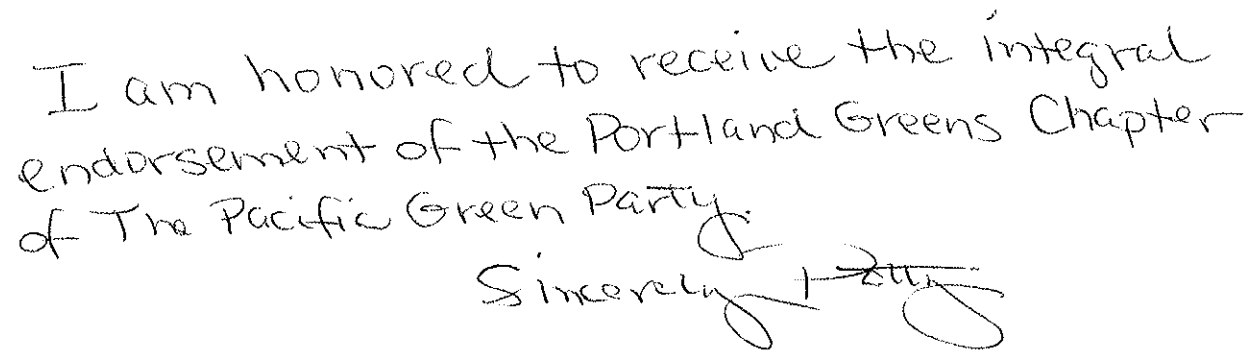 I am honored to receive the integral
endorsement of the Portland Greens Chapter
of The Pacific Green Party.
Sincerely